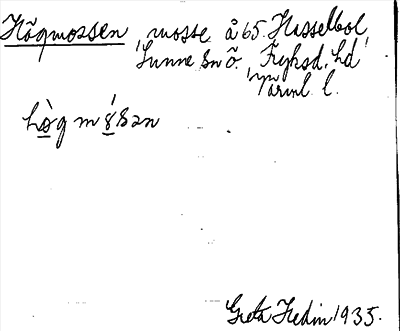 Högmossen, mosse å 65. Hasselbol,
Sunne sn ö. Fryksd. hd,
Värml. l.
hògmósən
Greta Hedin 1935.